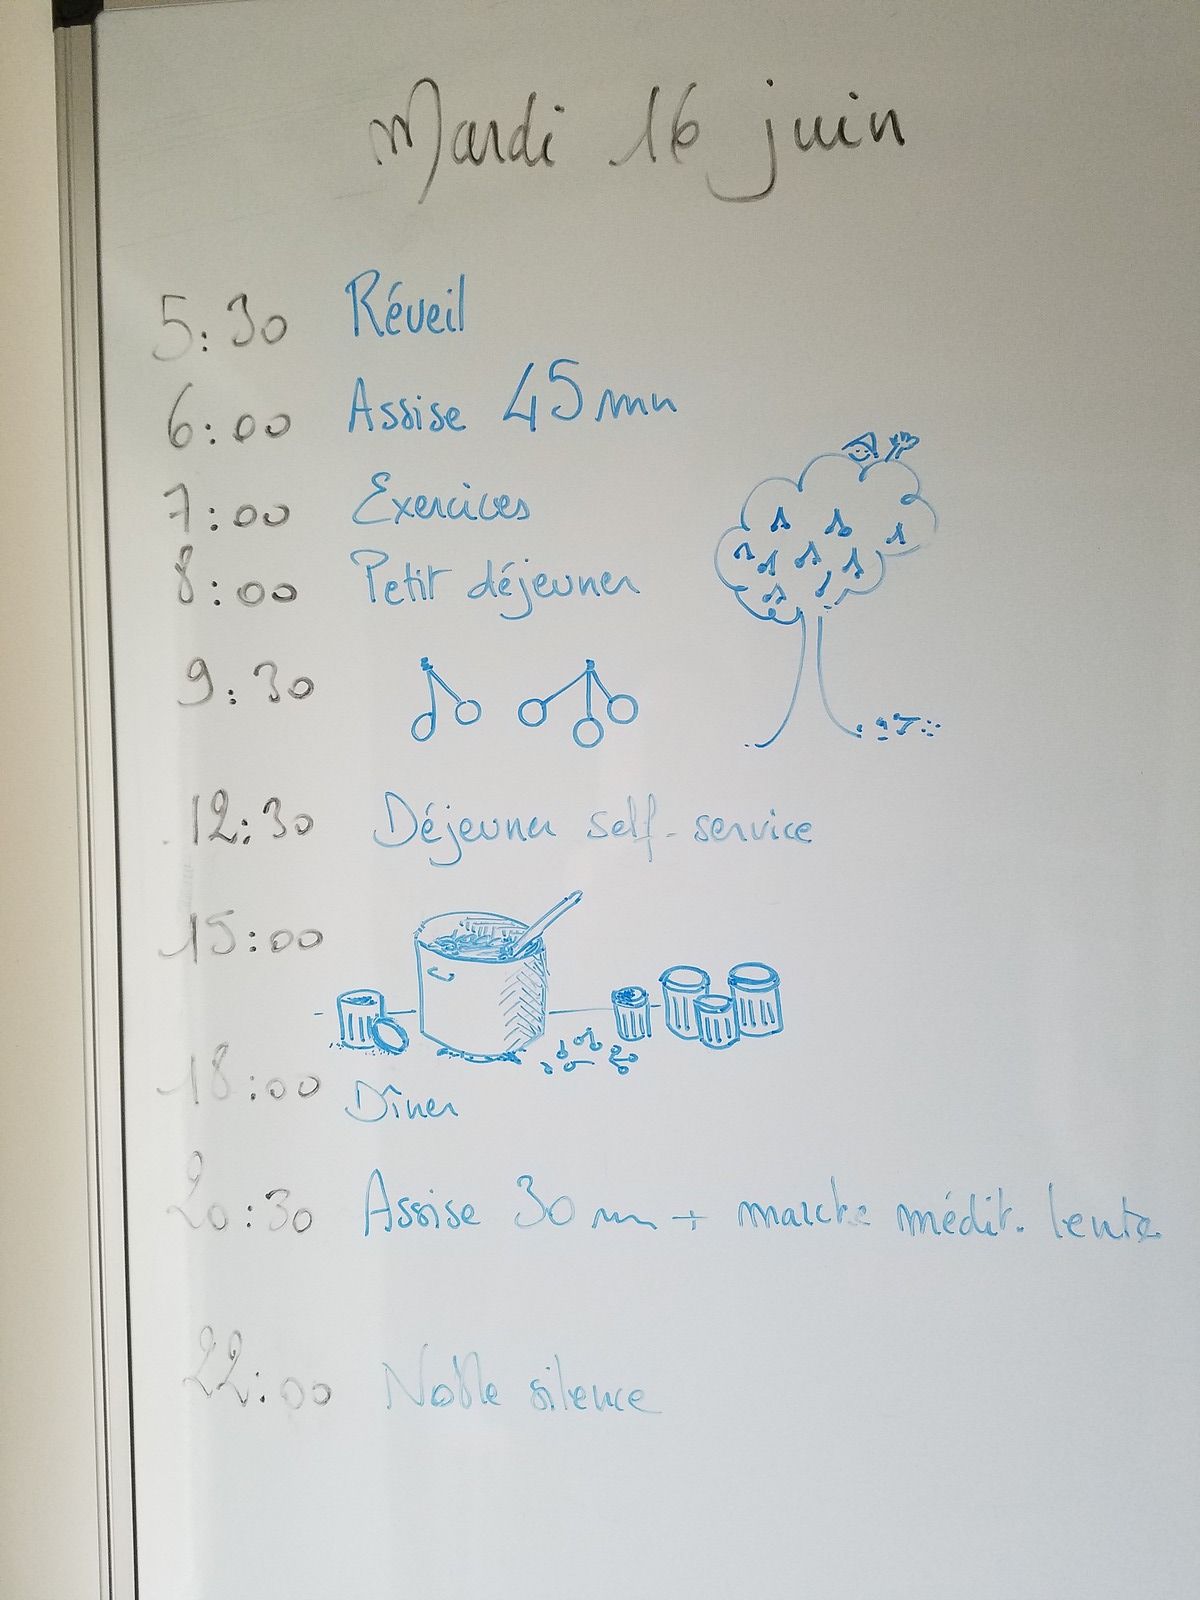 Mardi 16 juin
5:30 Réveil
6:00 Assise 45 mn
7:00 Exercices
8:00 Petit déjeuner
9:30
12:30 Déjeuner self-service
15:00
18:00 Dîner
20:30 Assise 30 mn + marche médit. lente
22:00 Noble silence